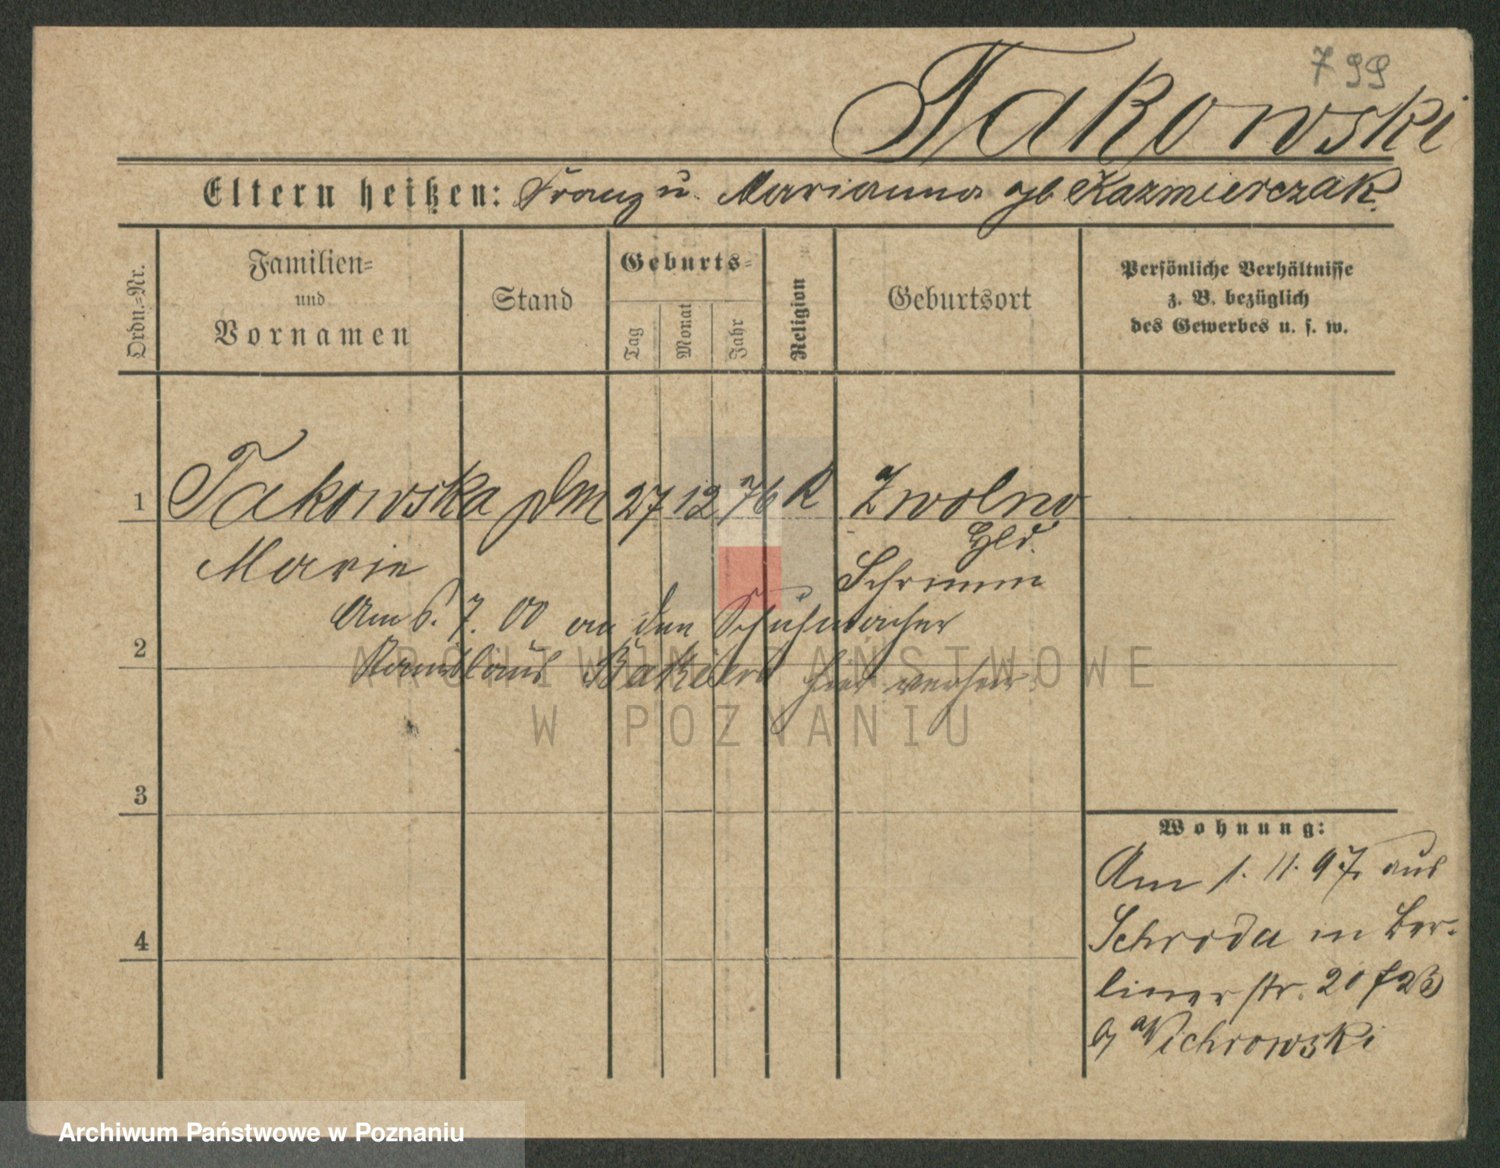 799
Takowski
Eltern heißen: Franz u. Marianna gb Kazmierczak
Ordn.=Nr.
Familien=
und
Vornamen
Stand
Geburts=
Tag
Monat
Jahr
Religion
Geburtsort
Persönliche Verhältnisse
z. B. bezüglich
des Gewerbes u. s. w.
1 Takowska 27 12 76 K Zwolno
Hld.
Marie Schrimm
Am 6. 7. 00 an den Schuhmacher
2
hier verheir.
ARCHIWUM PAŃSTWOWE
W POZNANIU
3
4
Wohnung:
Am 1. 11. 97. aus
Schroda in Ber-
linerstr. 20
Wichrowski
Archiwum Państwowe w Poznaniu